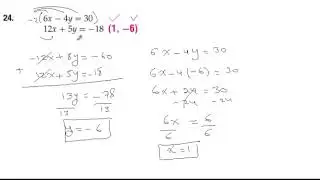 24. -2(6x − 4y = 30)
12x + 5y = −18 (1, −6)
-12x + 8y = -60
+ 12x + 5y = -18
13y = -78
13 13
y = -6
6x - 4y = 30
6x - 4(-6) = 30
6x + 24 = 30
-24 -24
6x = 6
6 6
x = 1